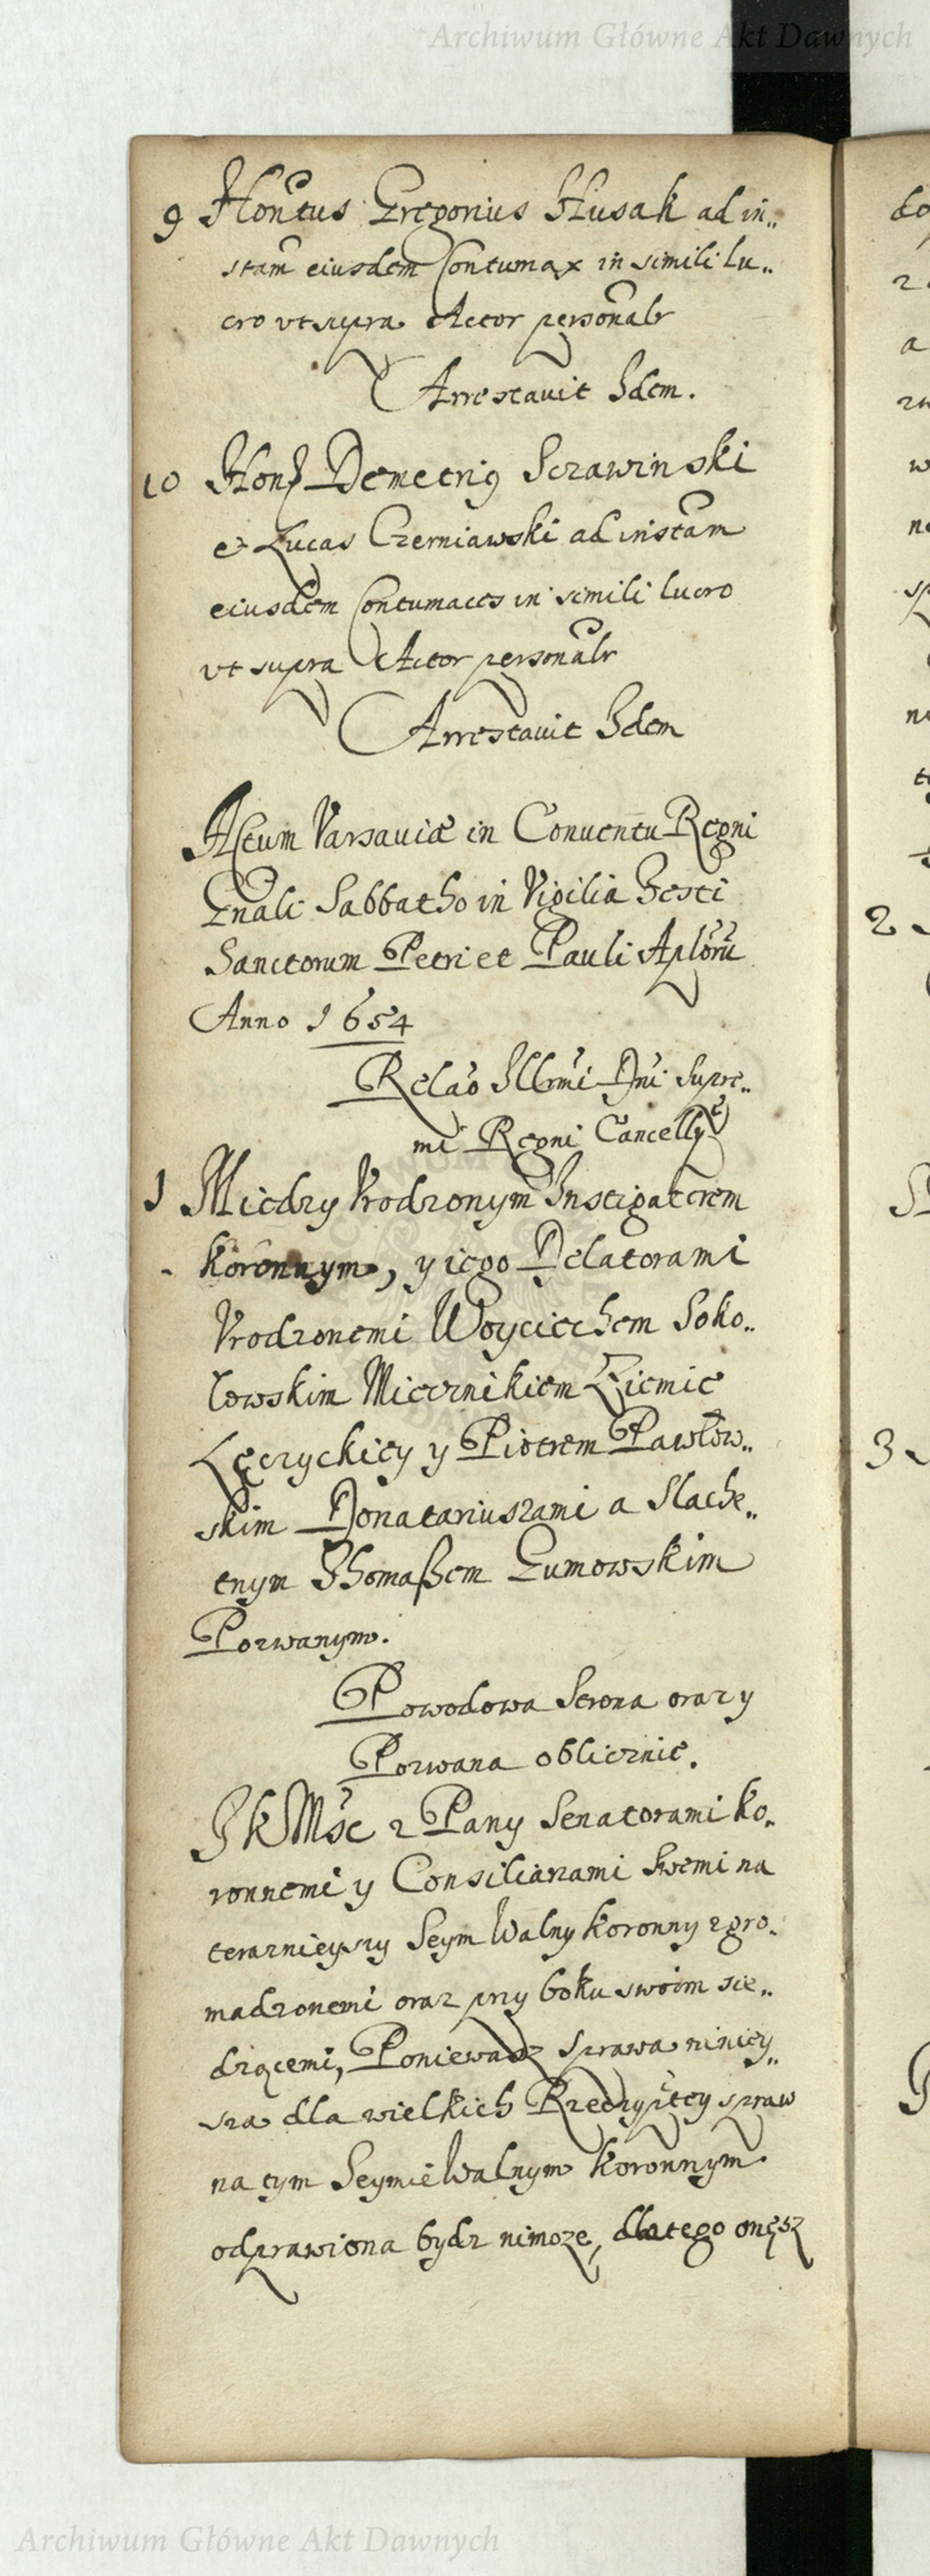 Archiwum Główne Akt Dawnych
9 Hontus Gregorius Husak ad in„
stam eiusdem Contumax in simili lu„
cro vt supra Actor personalr
Arrestauit Idem.
10 Hon Demetrig Strawinski
et Lucas Czerniawski ad instam
eiusdem Contumaces in simili lucro
vt supra Actor personalr
Arrestauit Idem
Actum Varsauiæ in Conuentu Regni
Gnali Sabbatho in Vigilia Festi
Sanctorum Petri et Pauli Aplorū
Anno 1654
Relao Illrmi Dni Supre„
mi Regni Cancellr
1 Miedzy Vrodzonym Instigatorem
koronnym, y iego Delatorami
Vrodzonemi Woyciechem Soko„
lowskim Miecznikiem Ziemie
Lęczyckiey y Piotrem Pawłow„
skim Donatariuszami a Slache„
tnym Thomaßem Gumowskim
Pozwanym.
Powodowa Strona oraz y
Pozwana oblicznie.
JKMsc z Pany Senatorami ko„
ronnemi y Consiliarzami Swemi na
terazniejszy Seym Walny koronny zgro„
madzonemi oraz przy boku swoim sie„
dzącemi, Poniewasz sprawa niniey„
sza dla wielkich Rzeczyptey spraw
na tym Seymie Walnym koronnym
odprawiona bydz nimoze, dlatego onęsz
do
2
a
w
3
Archiwum Główne Akt Dawnych